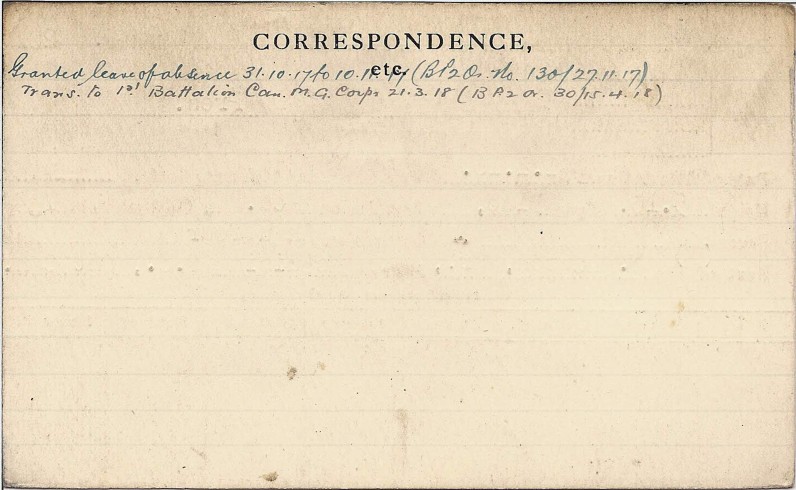 CORRESPONDENCE,
etc.
Granted leave of absence 31.10.17 to 10.11.17 (B P2 Or. No. 130/27.11.17)
Trans. to 1st Battalion Can. M.G. Corps 21.3.18 (B P2 Or. 30/15.4.18)